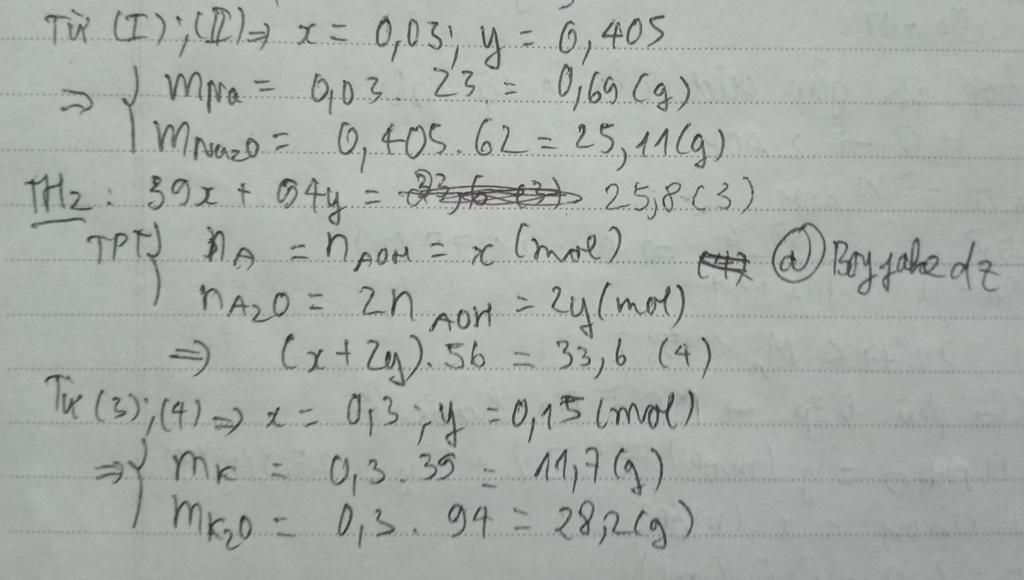 Từ (I); (II) ⇒ x = 0,03; y = 0,405
⇒ { mNa = 0,03 . 23 = 0,69 (g)
mNa2O = 0,405 . 62 = 25,11 (g)
TH2 : 39x + 94y = 25,8 (3)
TPT} nA = nAOH = x (mol)
nA2O = 2nAOH = 2y (mol)
@ Boyjake dz
⇒ (x + 2y) . 56 = 33,6 (4)
Từ (3); (4) ⇒ x = 0,3; y = 0,15 (mol)
⇒ { mK = 0,3 . 39 = 11,7 (g)
mK2O = 0,3 . 94 = 28,2 (g)